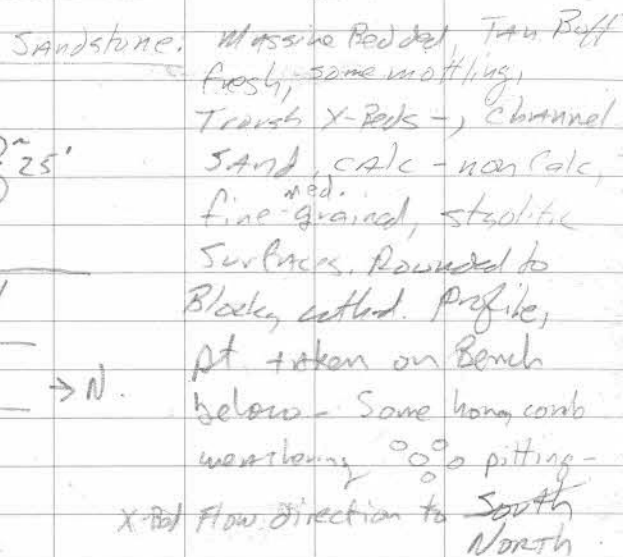 Sandstone: Massive Bedded, Tan Buff
fresh, some mottling,
Trough X-Beds -, Channel
~ 25'
Sand, calc - non Calc,
med.
fine-grained, styolitic
Surfaces. Rounded to
Blocky wethrd. Profile,
pt. taken on Bench
→ N.
below - Some honycomb
weathering pitting -
X-Bed Flow direction to South
NORTH.